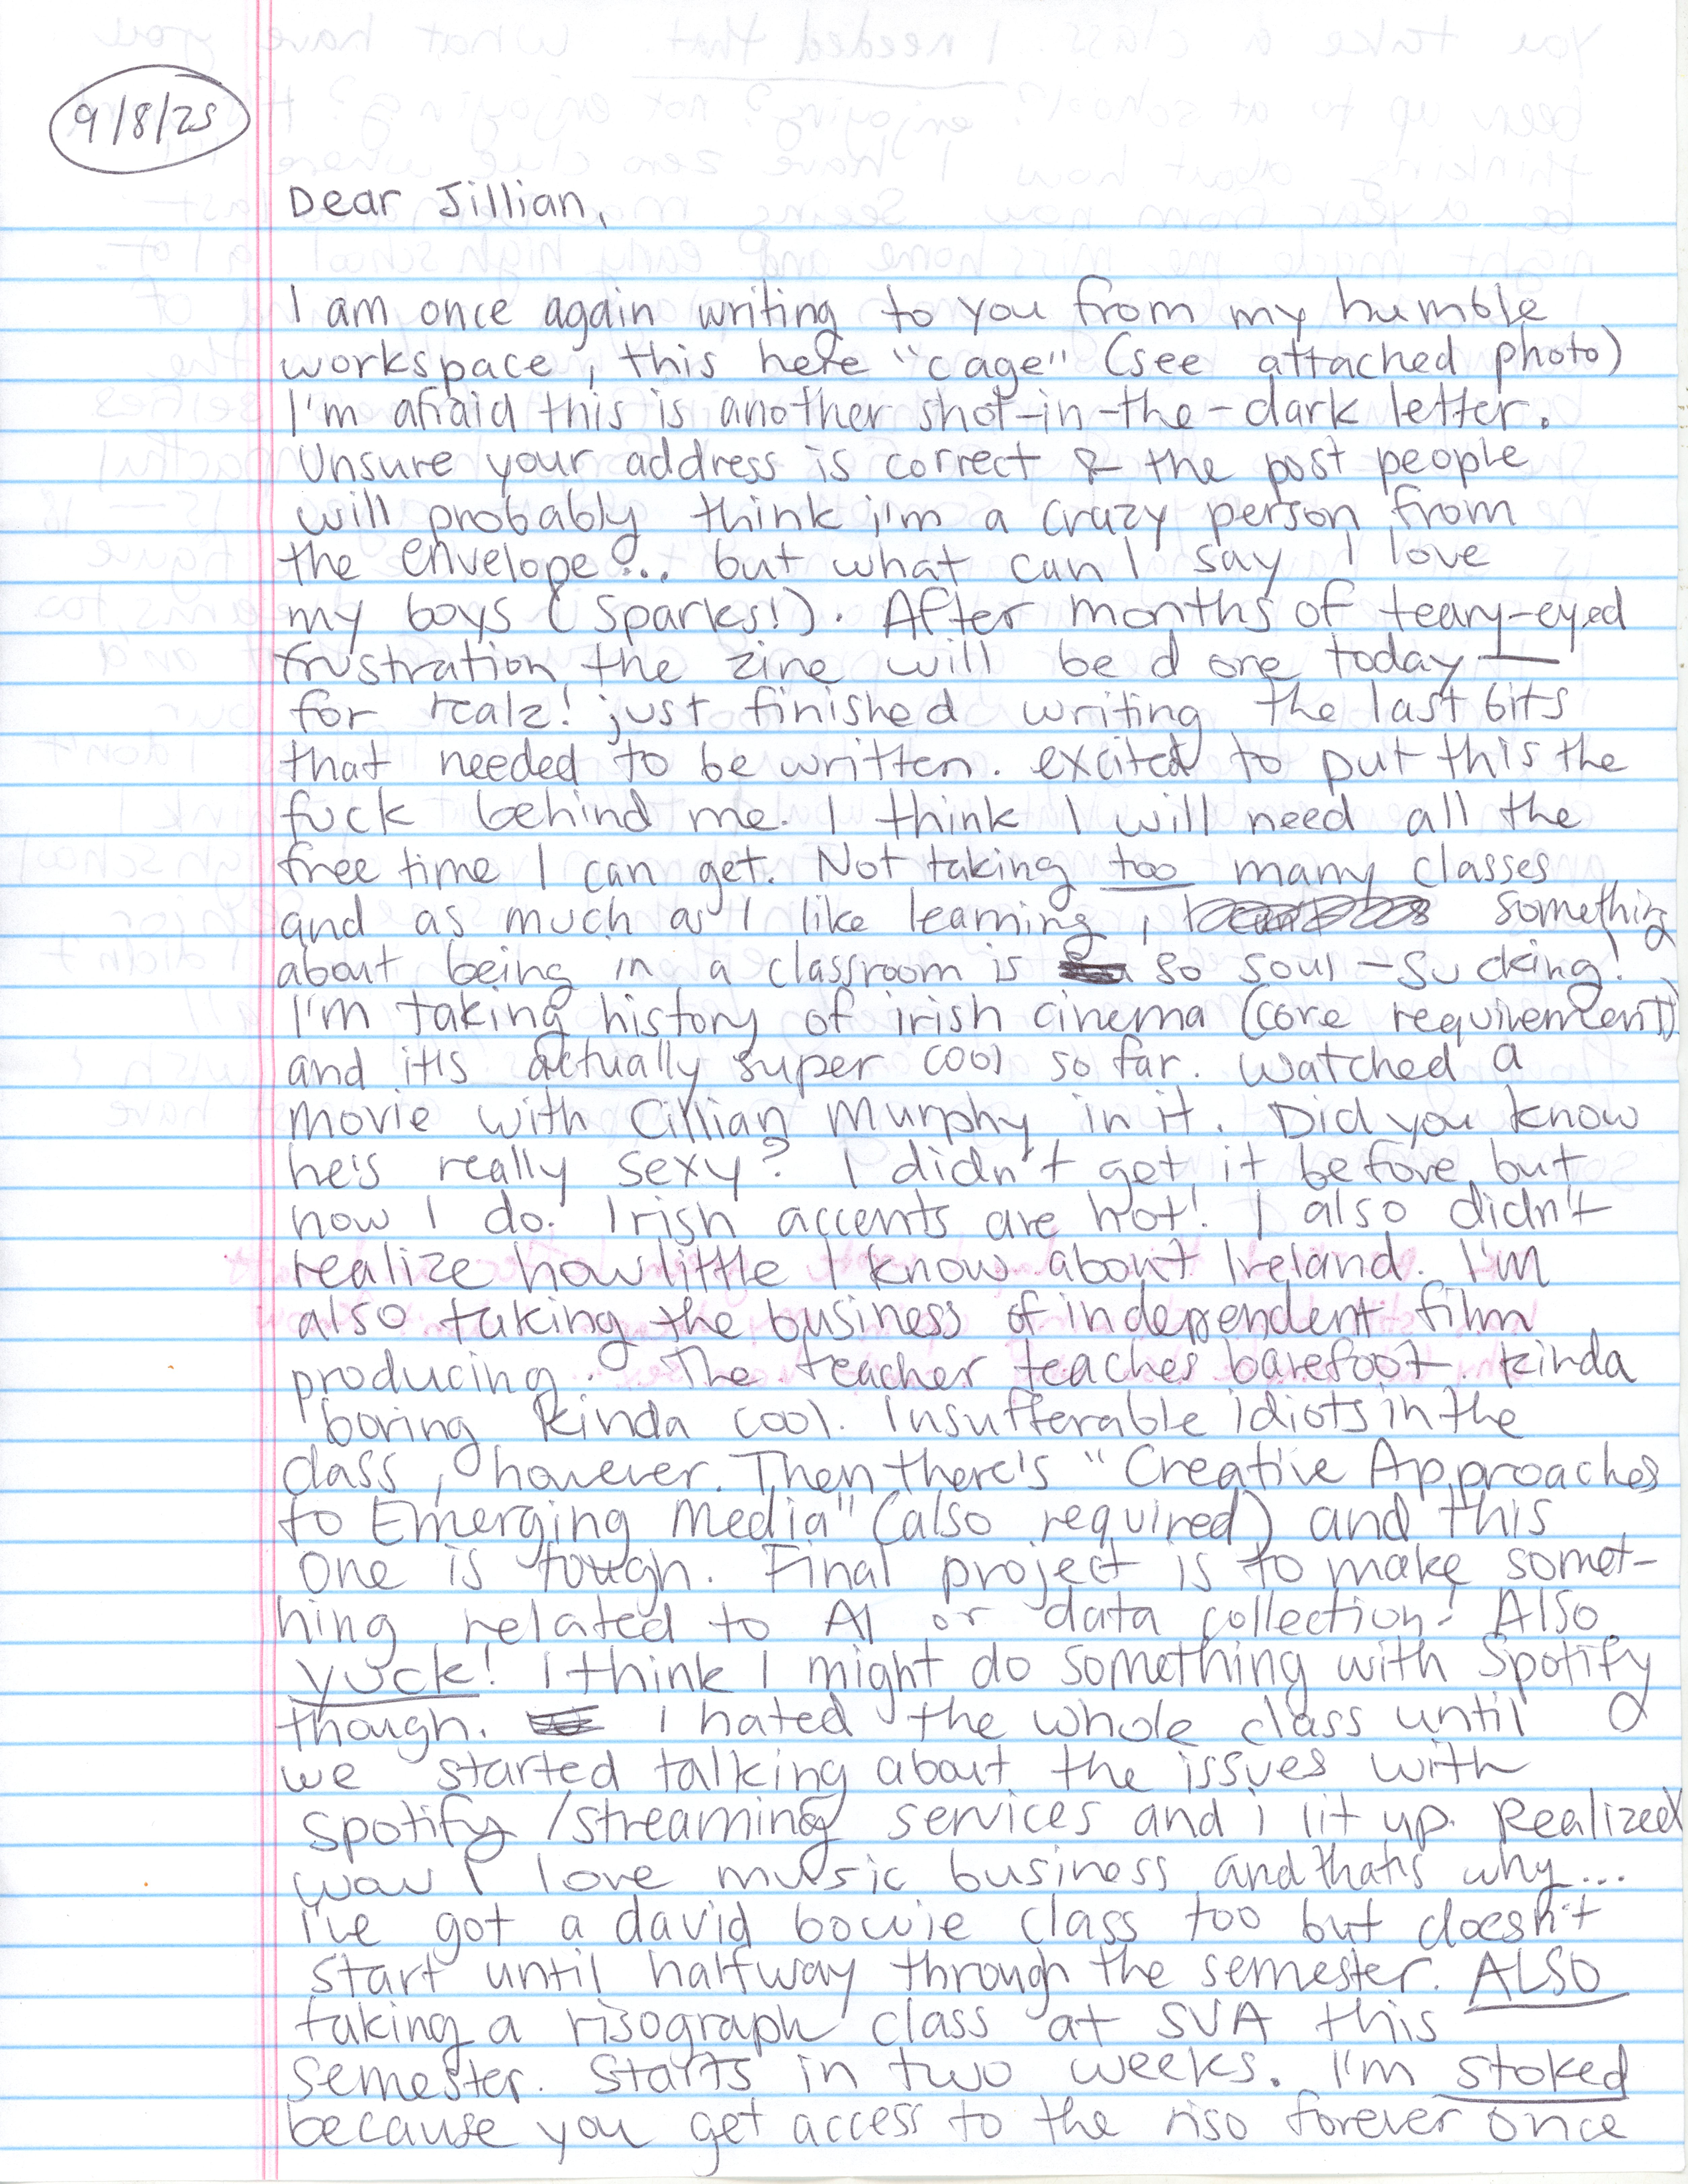 9/8/25
Dear Jillian,
I am once again writing to you from my humble
workspace, this here "cage" (see attached photo)
I'm afraid this is another shot-in-the-dark letter.
Unsure your address is correct & the post people
will probably think i'm a crazy person from
the envelope... but what can I say I love
my boys (Sparks!). After months of teary-eyed
frustration, the zine will be done today —
for realz! just finished writing the last bits
that needed to be written. excited to put this the
fuck behind me. I think I will need all the
free time I can get. Not taking too many classes
and as much as I like learning, something
about being in a classroom is so soul-sucking!
I'm taking history of irish cinema (core requirement)
and it's actually super cool so far. Watched a
movie with Cillian Murphy in it. Did you know
he's really sexy? I didn't get it before but
now I do. Irish accents are hot! I also didn't
realize how little I know about Ireland. I'm
also taking the business of independent film
producing. The teacher teaches barefoot. kinda
boring kinda cool. Insufferable idiots in the
class, however. Then there's "Creative Approaches
to Emerging Media" (also required) and this
one is tough. Final project is to make somet-
hing related to AI or data collection! Also
yuck! I think I might do something with Spotify
though. I hated the whole class until
we started talking about the issues with
spotify/streaming services and i lit up. Realized
wow I love music business and that's why...
i've got a david bowie class too but doesn't
start until halfway through the semester. ALSO
taking a risograph class at SVA this
semester. Starts in two weeks. I'm stoked
because you get access to the riso forever once